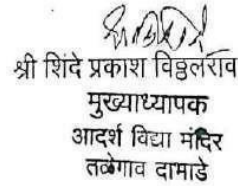 श्री शिंदे प्रकाश विठ्ठलराव
मुख्याध्यापक
आदर्श विद्या मंदिर
तळेगाव दाभाडे